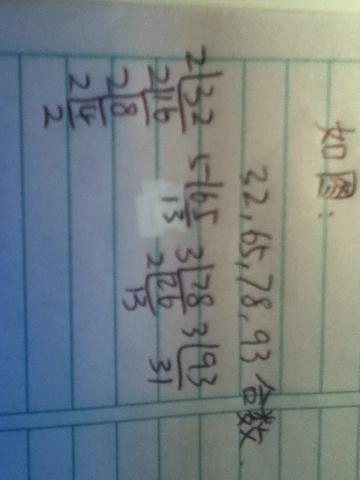 如图:
32,65,78,93合数.
2|32 5|65 3|78 3|93
2|16 13 2|26 31
2|8 13
2|4
2